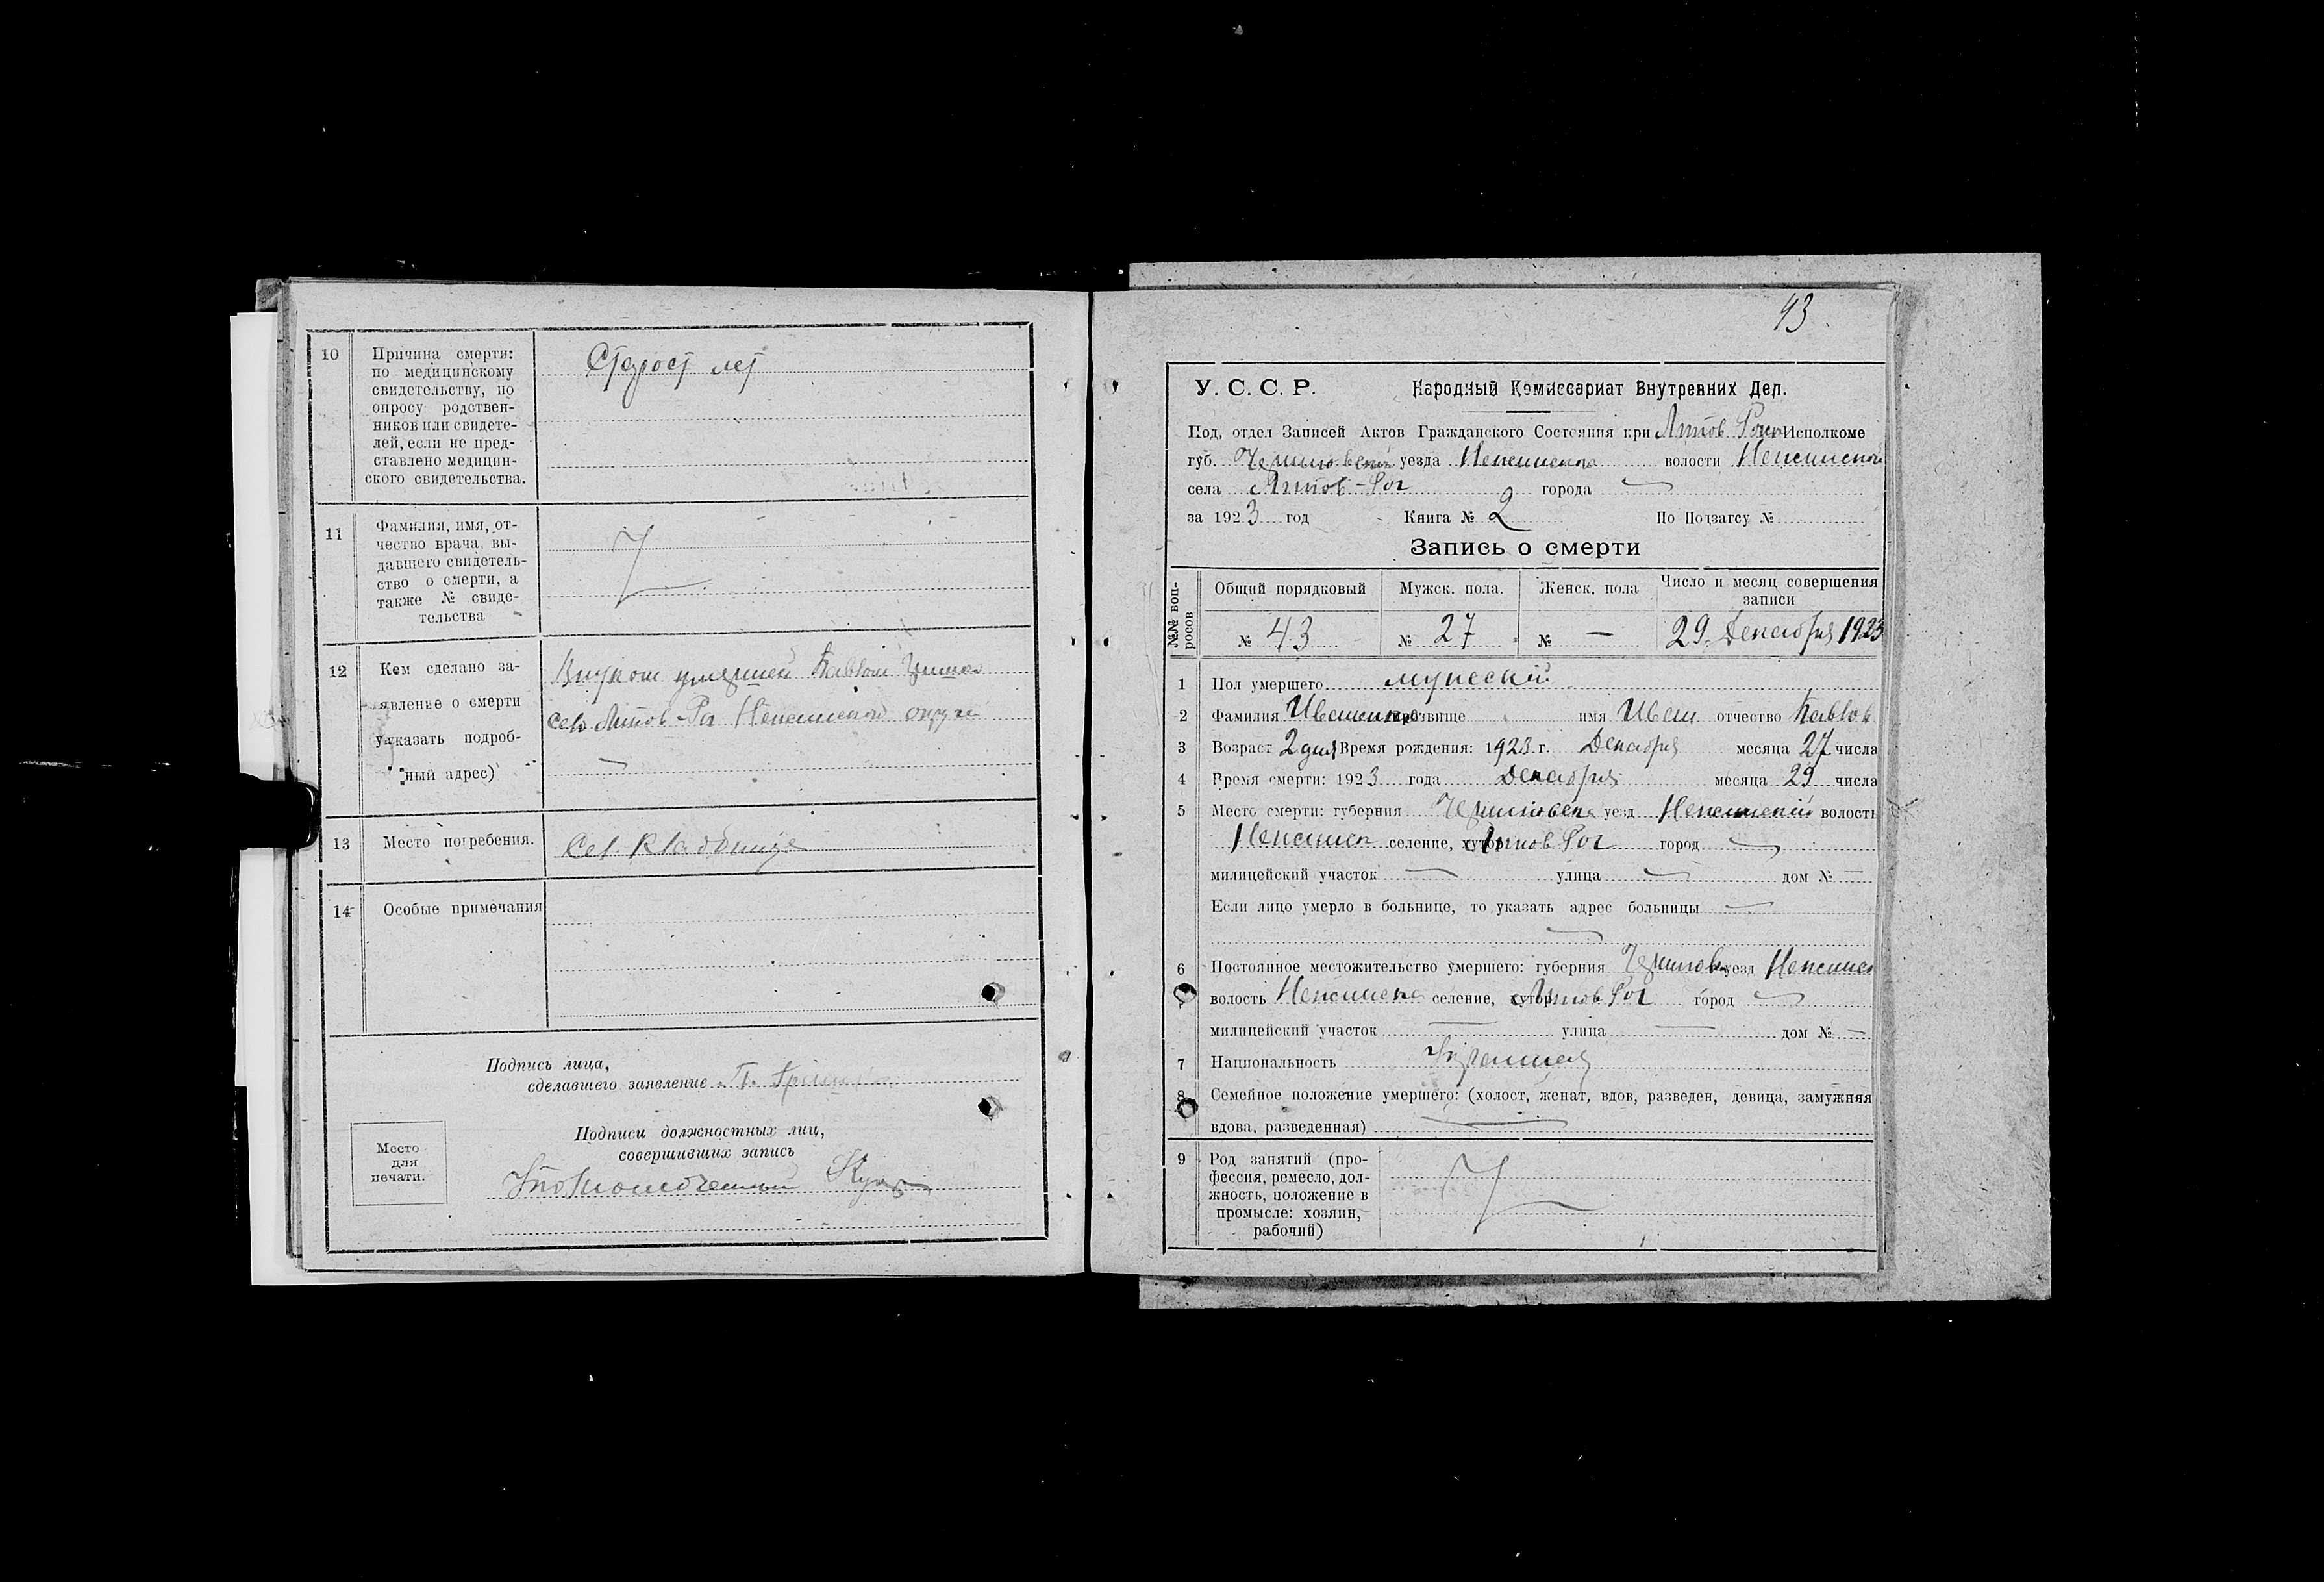 10 Причина смерти: Старост лет
по медицинскому
свидетельству, по
опросу родствен-
ников или свидете-
лей, если не пред-
ставлено медицин-
ского свидетельства.
11 Фамилия, имя, от-
чество врача, вы-
давшего свидетель-
ство о смерти, а
также № свиде-
тельства
12 Кем сделано за- Внуком умершей Павлом
явление о смерти село Липов-Рог Неженской округи
указать подроб-
ный адрес)
13 Место погребения. Сел. Кладбище
14 Особые примечания
Подпись лица,
сделавшего заявление
Подписи должностных лиц,
совершивших запись
Место
для
печати.
Уполномоченный
43
У. С. С. Р. Народный Комиссариат Внутренних Дел.
Под, отдел Записей Актов Гражданского Состояния при Липов Рог Исполкоме
губ. Черниговской уезда Неженского волости Неженской
села Липов-Рог города —
за 1923 год Книга № 2 По Подзагсу №
Запись о смерти
№№ воп-
росов
Общий порядковый Мужск. пола. Женск. пола Число и месяц совершения
записи
№ 43 № 27 № — 29 Декабря 1923
1 Пол умершего мужеский
2 Фамилия Иваненко прозвище имя Иван отчество Павлов.
3 Возраст 2 дня Время рождения: 1923 г. Декабря месяца 27 числа
4 Время смерти: 1923 года Декабря месяца 29 числа
5 Место смерти: губерния Черниговск уезд Неженский волость
Неженск селение, хутор Липов Рог город —
милицейский участок — улица — дом № —
Если лицо умерло в больнице, то указать адрес больницы —
6 Постоянное местожительство умершего: губерния Чернигов уезд Неженск
волость Неженск селение, хутор Липов Рог город —
милицейский участок — улица — дом № —
7 Национальность
8 Семейное положение умершего: (холост, женат, вдов, разведен, девица, замужняя
вдова, разведенная) —
9 Род занятий (про-
фессия, ремесло, дол-
жность, положение в
промысле: хозяин,
рабочий)